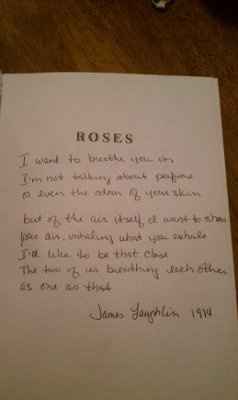 ROSES
I want to breathe you in
I'm not talking about perfume
or even the odor of your skin
but of the air itself I want to share
your air inhaling what you exhale
I'd like to be that close
The two of us breathing each other
as one as that
James Laughlin 1914